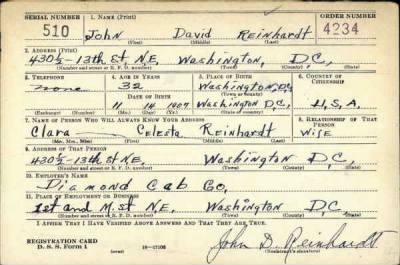 SERIAL NUMBER 1. NAME (Print) ORDER NUMBER
510 John David Reinhardt 4234
(First) (Middle) (Last)
2. ADDRESS (Print)
430½-13th St. N.E. Washington, D.C.
(Number and street or R. F. D. number) (Town) (County) (State)
3. TELEPHONE 4. AGE IN YEARS 5. PLACE OF BIRTH 6. COUNTRY OF CITIZENSHIP
none 32 Washington, D.C.
DATE OF BIRTH (Town or county)
11 14 1907 Washington D.C. U.S.A.
(Exchange) (Number) (Mo.) (Day) (Yr.) (State or country)
7. NAME OF PERSON WHO WILL ALWAYS KNOW YOUR ADDRESS 8. RELATIONSHIP OF THAT PERSON
Clara Celesta Reinhardt Wife
(Mr., Mrs., Miss) (First) (Middle) (Last)
9. ADDRESS OF THAT PERSON
430½-13th St N.E. Washington D.C.
(Number and street or R. F. D. number) (Town) (County) (State)
10. EMPLOYER'S NAME
Diamond Cab Co.
11. PLACE OF EMPLOYMENT OR BUSINESS
1st and M. St N.E. Washington D.C.
(Number and street or R. F. D. number) (Town) (County) (State)
I AFFIRM THAT I HAVE VERIFIED ABOVE ANSWERS AND THAT THEY ARE TRUE.
REGISTRATION CARD
D. S. S. Form 1 (over) 16-17105 John D. Reinhardt
(Registrant's signature)